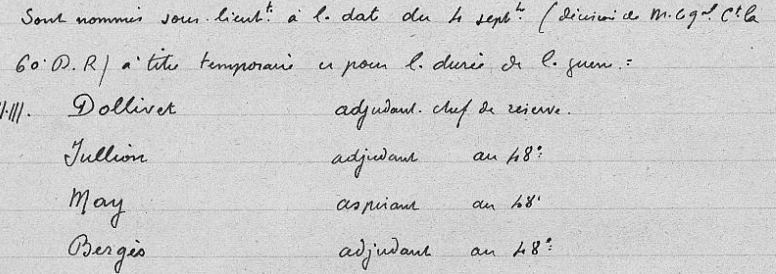 Sont nommés sous-lieutts à la dat du 4 septbre (décision de M. le gal Ct la
60e D.R) à titre temporaire et pour la durée de la guerre :
Dollivet adjudant-chef de réserve.
Jullion adjudant au 48e
May aspirant au 48e
Bergès adjudant au 48e